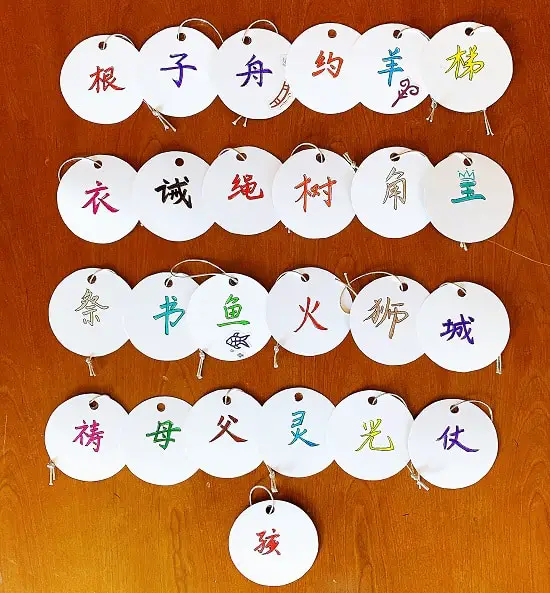 根 子 舟 约 羊 梯
衣 诫 绳 树 角 王
祭 书 鱼 火 狮 城
祷 母 父 灵 光 仗
孩